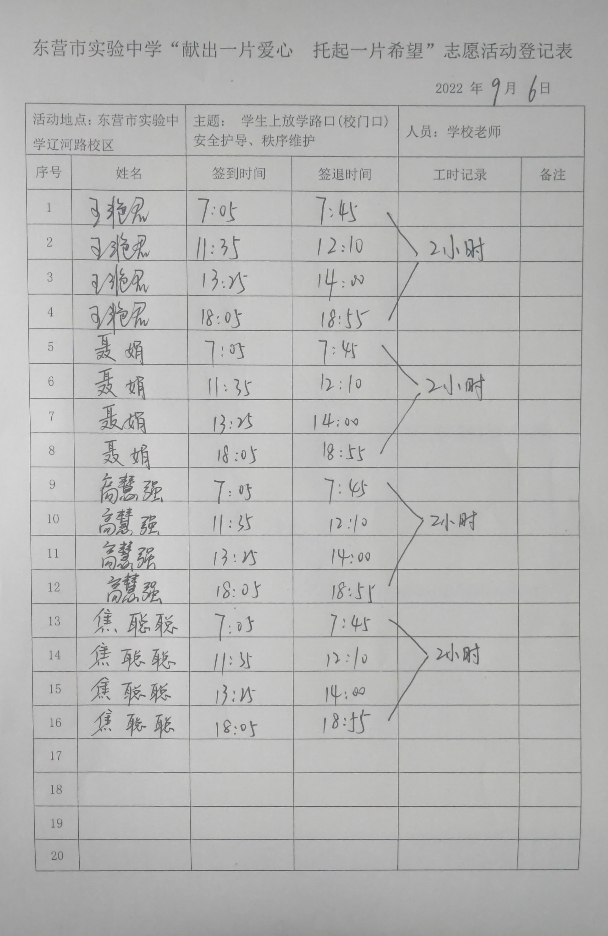 东营市实验中学“献出一片爱心 托起一片希望”志愿活动登记表
2022 年 9 月 6 日
活动地点：东营市实验中学辽河路校区 主题： 学生上放学路口(校门口)安全护导、秩序维护 人员：学校老师
序号 姓名 签到时间 签退时间 工时记录 备注
1 王艳君 7:05 7:45
2 王艳君 11:35 12:10 2小时
3 王艳君 13:25 14:00
4 王艳君 18:05 18:55
5 聂娟 7:05 7:45
6 聂娟 11:35 12:10 2小时
7 聂娟 13:25 14:00
8 聂娟 18:05 18:55
9 高慧强 7:05 7:45
10 高慧强 11:35 12:10 2小时
11 高慧强 13:25 14:00
12 高慧强 18:05 18:55
13 焦聪聪 7:05 7:45
14 焦聪聪 11:35 12:10 2小时
15 焦聪聪 13:25 14:00
16 焦聪聪 18:05 18:55
17
18
19
20